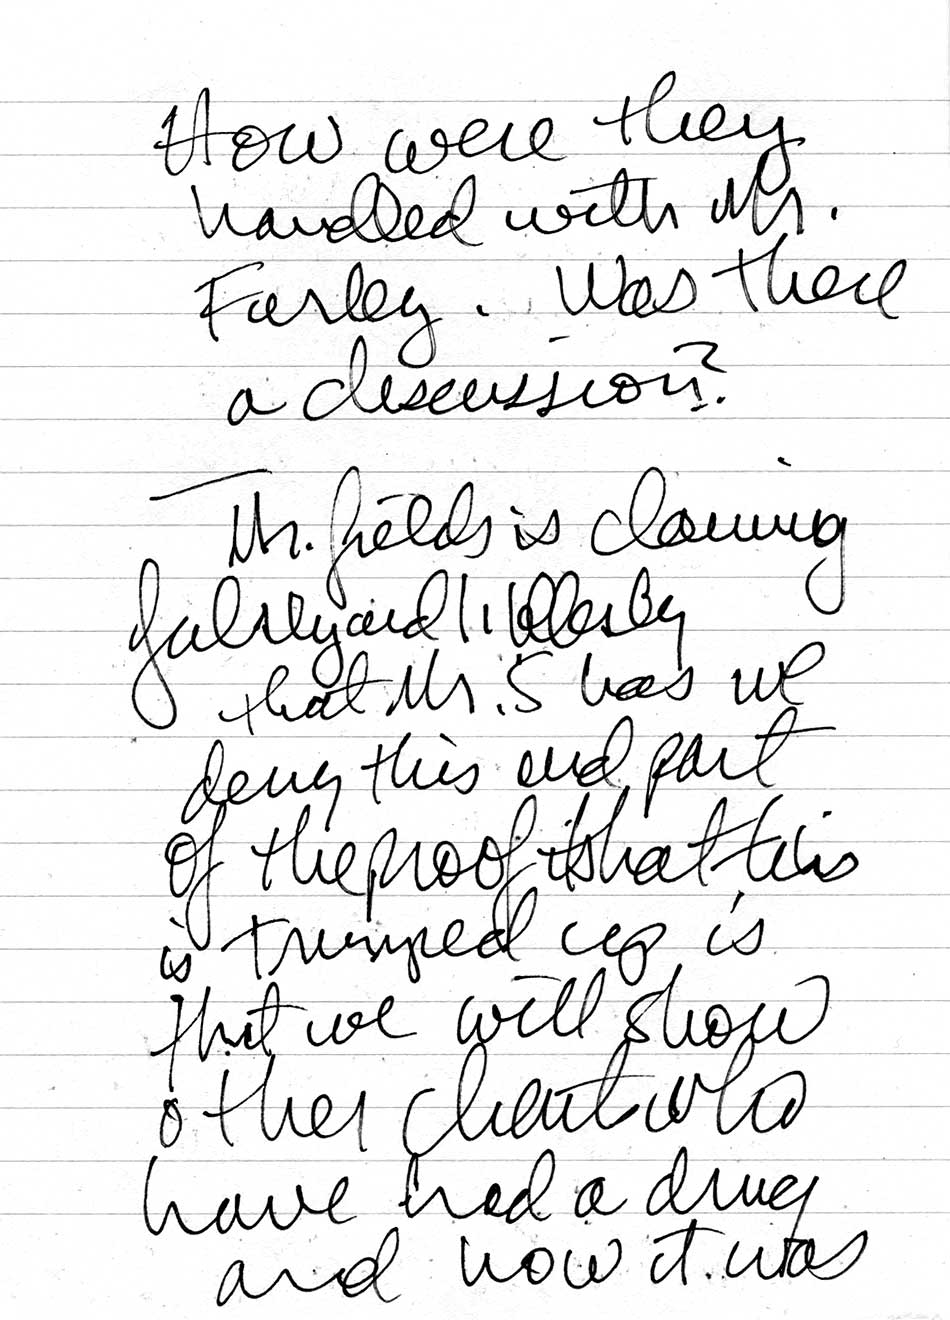 How were they
handled with Mr.
Farley. Was there
a discussion?
Mr. Fields is claiming
falsely and
that Mr. S has we
deny this and part
of the proof that this
is trumped up is
that we will show
other client who
have had a drug
and how it was